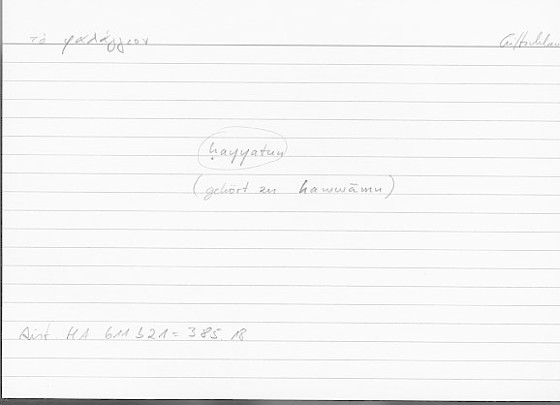 τὸ φαλάγγιον Giftschlan
ḥayyatun
(gehört zu hawwāmu)
Arist. HA 611 b 21 = 385. 18